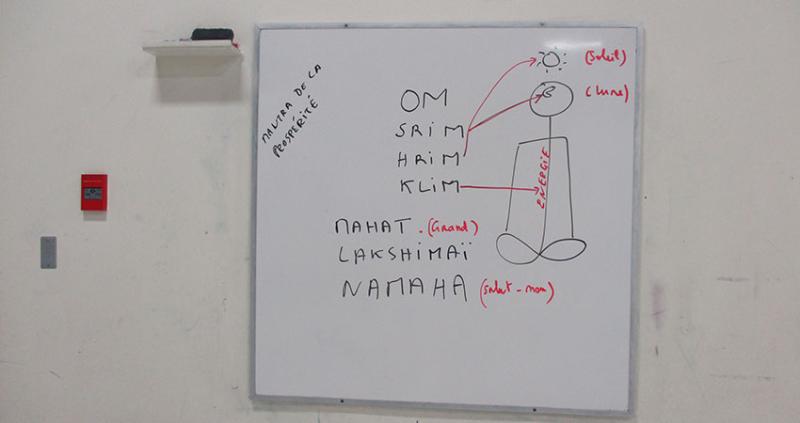 MANTRA DE LA
PROSPÉRITÉ
OM
SRIM
HRIM
KLIM
MAHAT. (Grand)
LAKSHIMAÏ
NAMAHA (salut-nom)
(Soleil)
(Lune)
ENERGIE